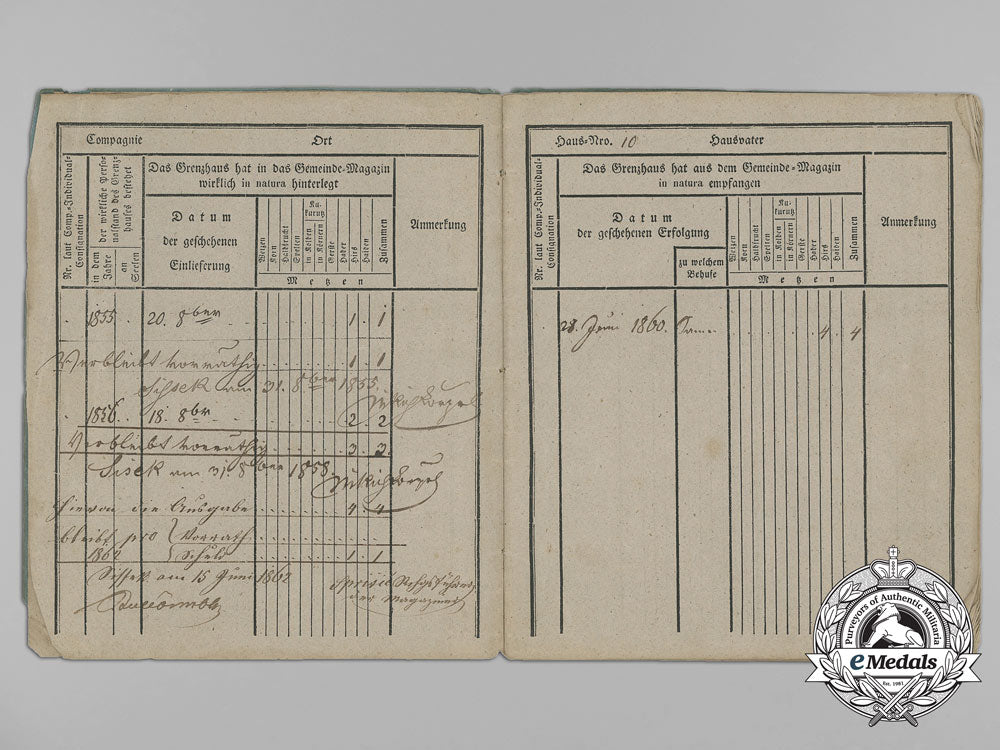 Compagnie Ort
Nr. laut Comp.-Individual-Consignation
in dem Jahre
der wirkliche Personalstand des Grenzhauses bestehet
an Seelen
Das Grenzhaus hat in das Gemeinde-Magazin
wirklich in natura hinterlegt
Datum
der geschehenen
Einlieferung
Weizen
Korn
Halbfrucht
Spelten
Kukurutz
in Kolben
in Körnern
Gerste
Haber
Hirs
Haiden
Zusammen
Metzen
Anmerkung
1855 20. 8ber 1 1
Verbleibt vorräthig 1 1
Sissek am 31. 8ber 1855
1856 18. 8br 2 2
Verbleibt vorräthig 3 3
Sisek am 31. 8ber 1858
Hievon die Ausgabe 4 4
bleibt pro Vorrath
1862 Schuld 1 1
Sissek am 15 Juni 1862
der Magazine
Haus-Nro. 10 Hausvater
Nr. laut Comp.-Individual-Consignation
Das Grenzhaus hat aus dem Gemeinde-Magazin
in natura empfangen
Datum
der geschehenen Erfolgung
zu welchem
Behufe
Weizen
Korn
Halbfrucht
Spelten
Kukurutz
in Kolben
in Körnern
Gerste
Haber
Hirs
Haiden
Zusammen
Metzen
Anmerkung
28. Juni 1860. 4 4
Purveyors of Authentic Militaria
eMedals
Est. 1981